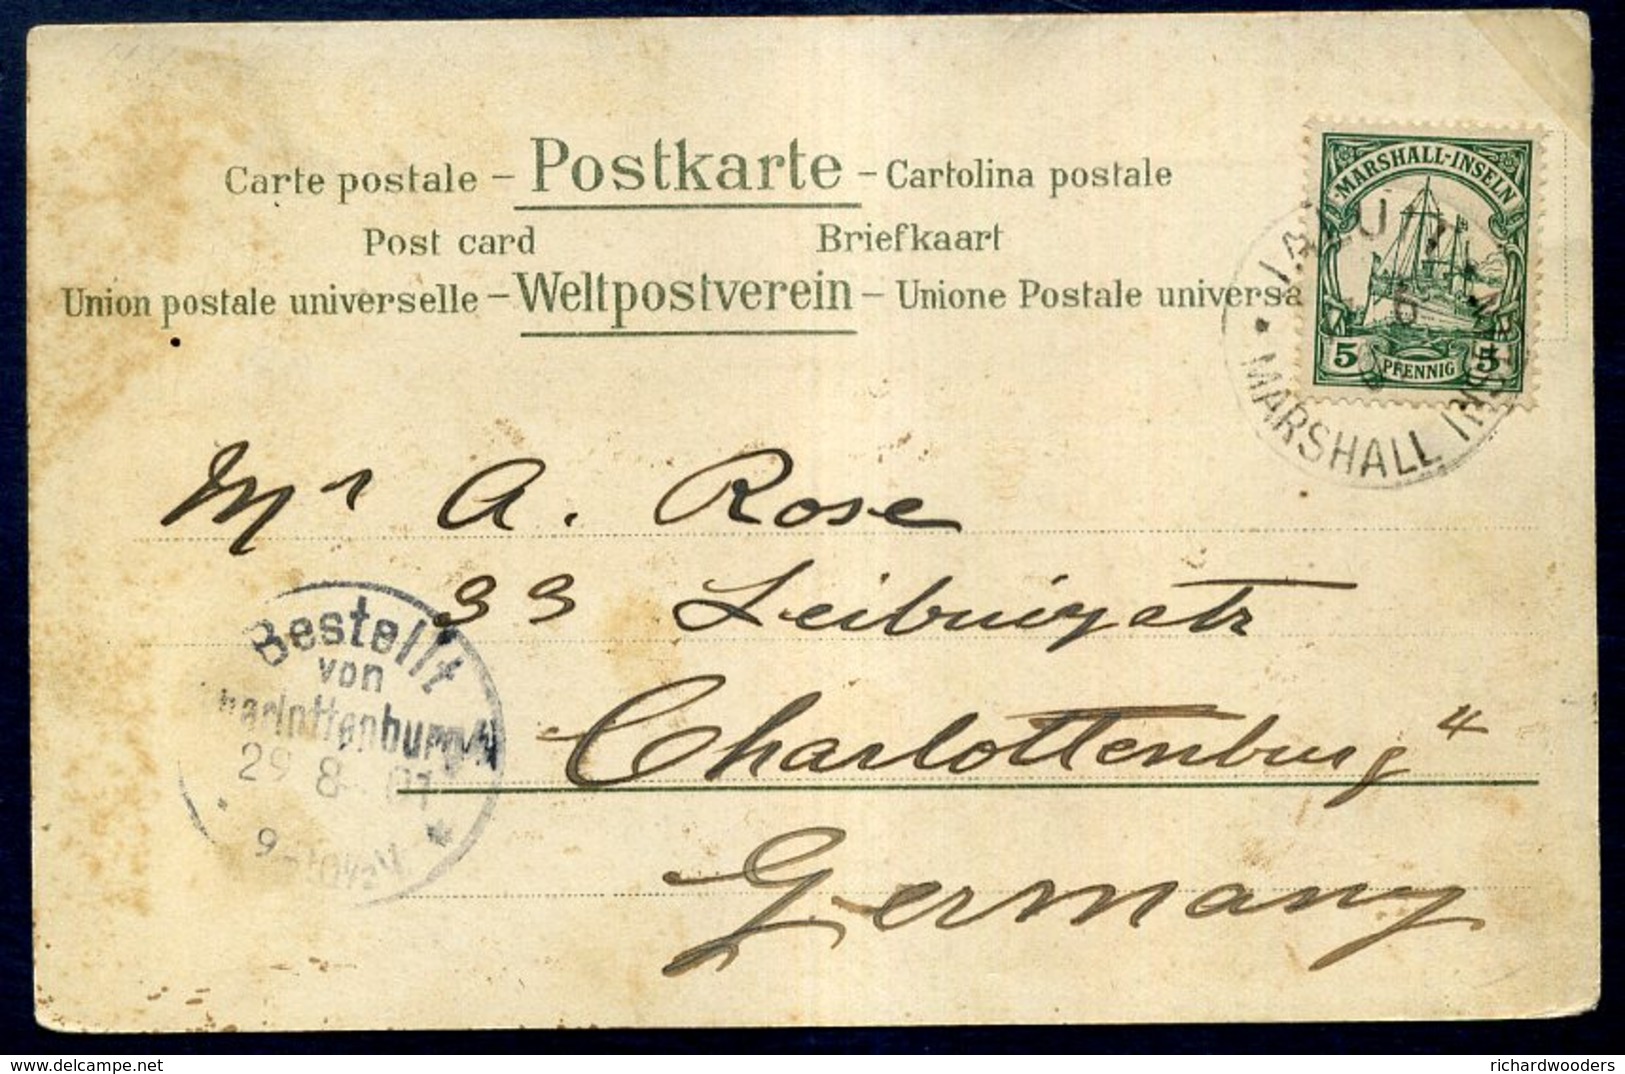 Carte postale – Postkarte – Cartolina postale
Post card Briefkaart
Union postale universelle – Weltpostverein – Unione Postale universa
MARSHALL-INSELN
5 PFENNIG 5
JALUIT
MARSHALL INSELN
Mr A. Rose
33 Leibnizstr
Charlottenburg 4
Germany
Bestellt
von
Charlottenburg
29 8 01
9-10¼V
delcampe.net
richardwooders